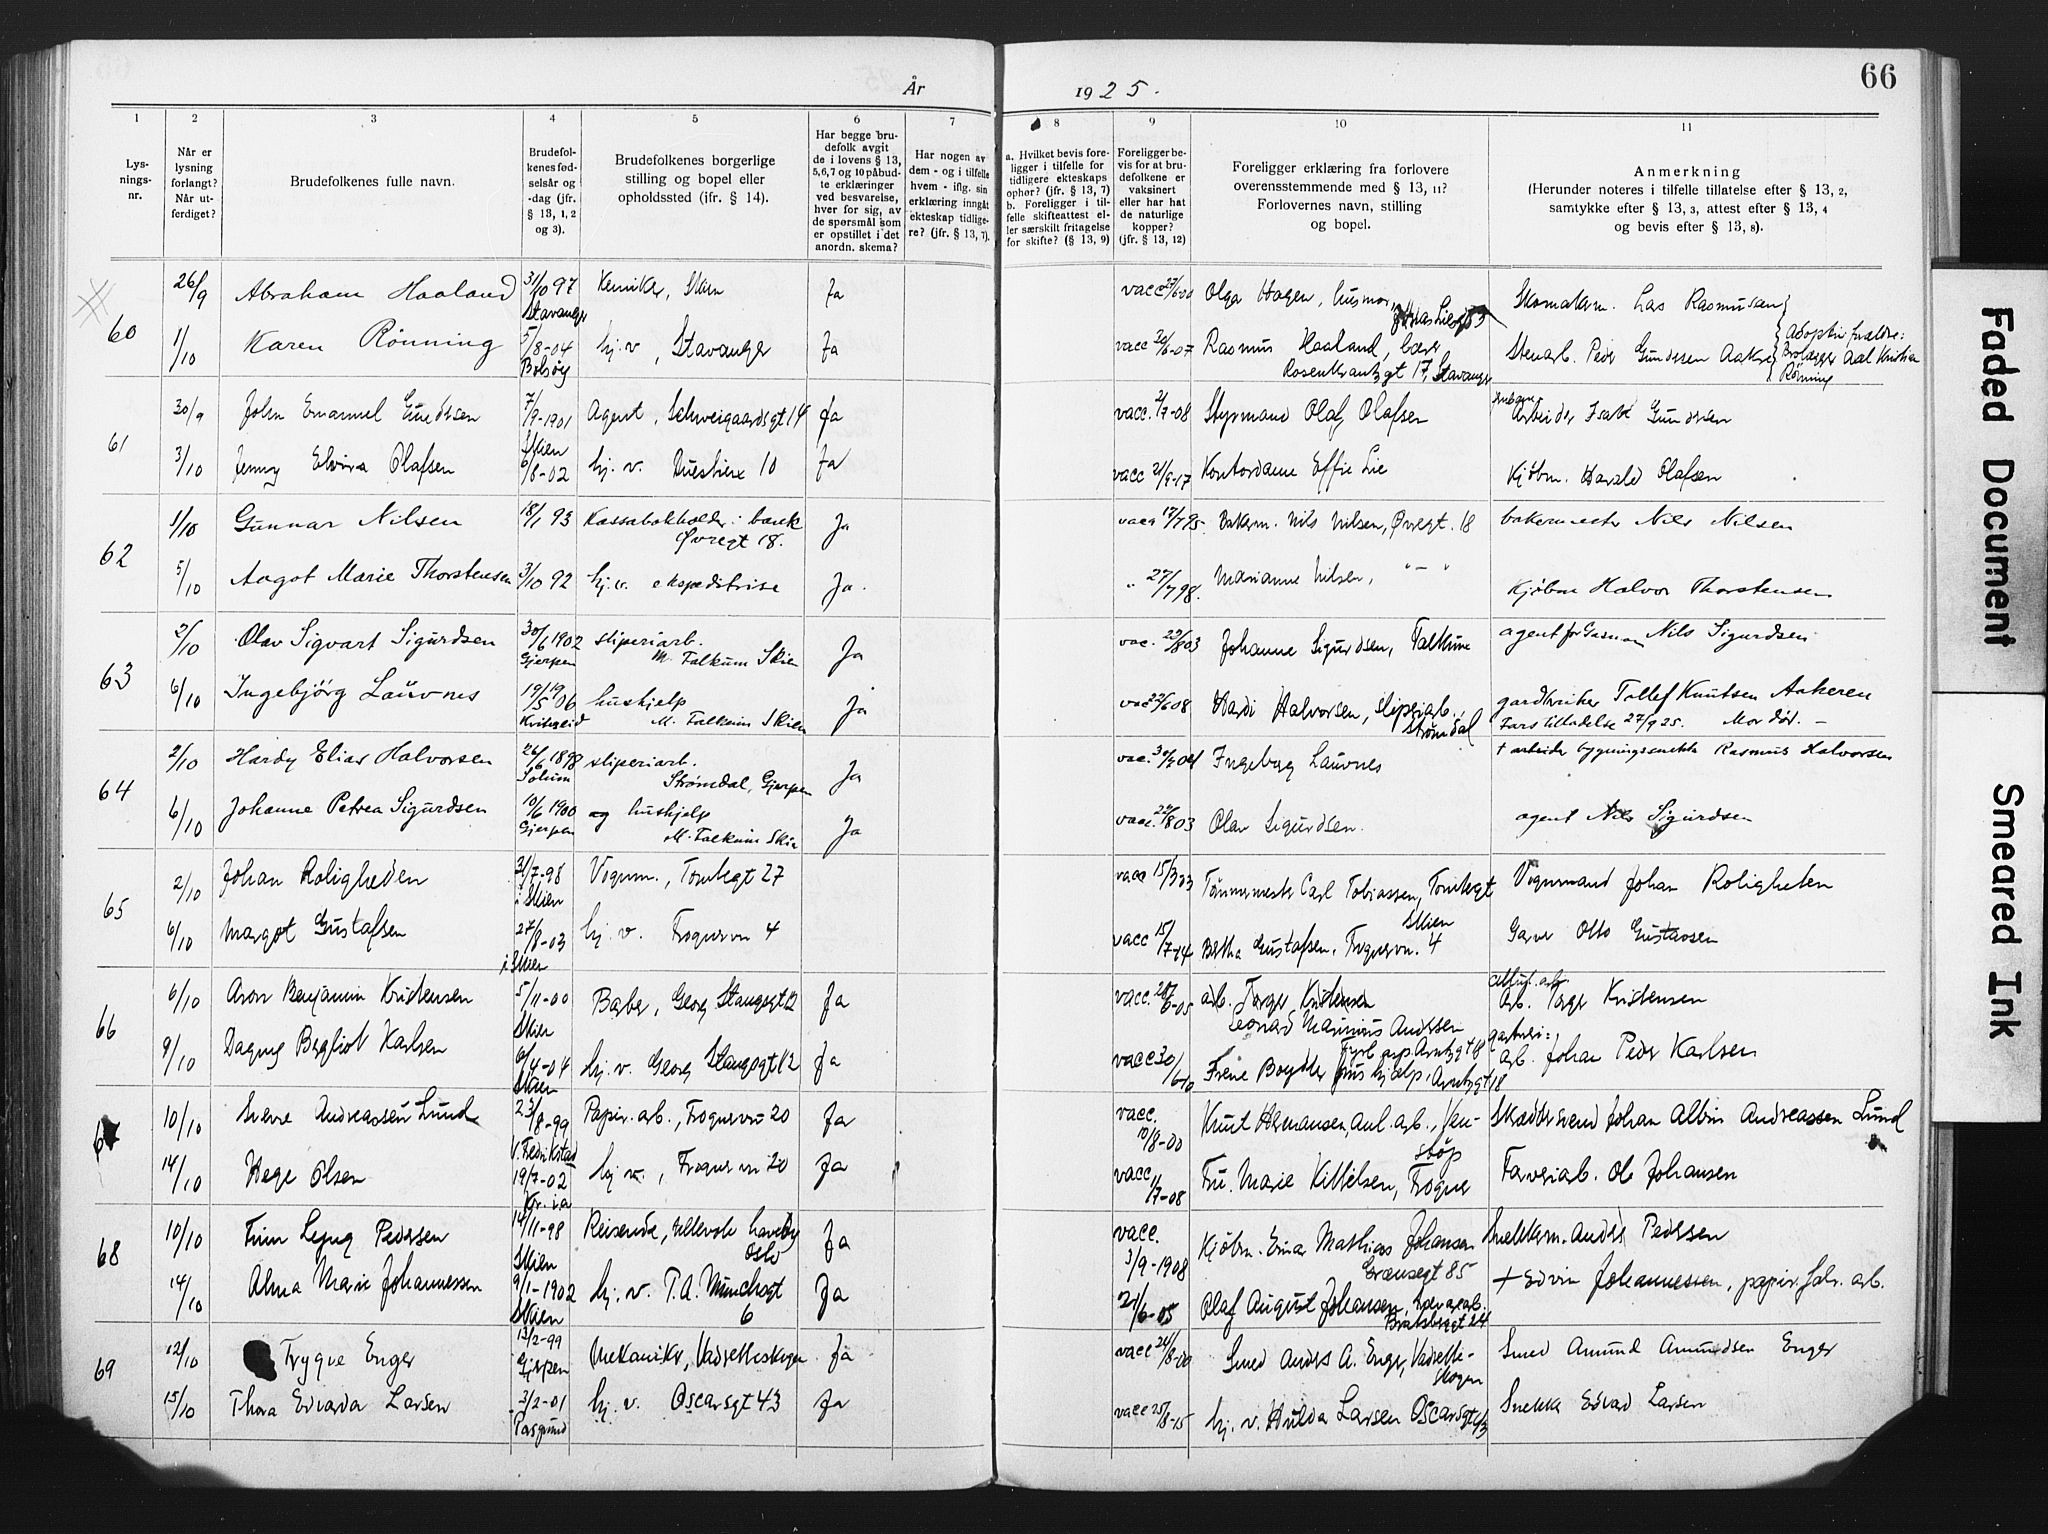 År 1925.
66
1 2 3 4 5 6 7 8 9 10 11
Lysningsnr.
Når er lysning forlangt? Når utferdiget?
Brudefolkenes fulle navn.
Brudefolkenes fødselsår og -dag (jfr. § 13, 1, 2 og 3).
Brudefolkenes borgerlige stilling og bopel eller opholdssted (jfr. § 14).
Har begge brudefolk avgit de i lovens § 13, 5, 6, 7 og 10 påbudte erklæringer ved besvarelse, hver for sig, av de spørsmål som er opstillet i det anordn. skema?
Har nogen av dem - og i tilfelle hvem - iflg. sin erklæring inngått ekteskap tidligere? (jfr. § 13, 7).
a. Hvilket bevis foreligger i tilfelle for tidligere ekteskaps ophør? (jfr. § 13, 7) b. Foreligger i tilfelle skifteattest eller særskilt fritagelse for skifte? (§ 13, 9)
Foreligger bevis for at brudefolkene er vaksinert eller har hat de naturlige kopper? (jfr. § 13, 12)
Foreligger erklæring fra forlovere overensstemmende med § 13, 11? Forlovernes navn, stilling og bopel.
Anmerkning (Herunder noteres i tilfelle tillatelse efter § 13, 2, samtykke efter § 13, 3, attest efter § 13, 4 og bevis efter § 13, 8).
60
26/9 Abraham Haaland 31/10 97 Stavanger Kemiker, Skien Ja vacc 27/6-00 Olga Hagen, husmor, Skomakerm. Lars Rasmusen
1/10 Karen Rönning 5/8-04 Bolsöy hj. v., Stavanger Ja vacc 26/6-07 Rasmus Haaland, Rosenkrantzgt 17, Stavanger Stenarb. Peder Gundersen Aakre
Adoptivforældre: Brolægger Axel Kristian Rönning
61
30/9 John Emanuel Gundersen 7/9-1901 Skien Agent, Schweigaardsgt 14 Ja vacc. 2/7-08 Styrmand Olaf Olafsen Arbeider Isak Gundersen
3/10 Jenny Elvira Olafsen 6/8-02 hj. v. Duestien 10 Ja vacc 21/9-17 Kontordame Effie Lie Kjöbm. Harald Olafsen
62
1/10 Gunnar Nilsen 18/1 93 Kassabokholder i bank Øvregt 18. Ja vacc 17/7 95. Bakerm. Nils Nilsen, Øvregt. 18 bakermester Nils Nilsen
5/10 Aagot Marie Thorstensen 3/10 92 hj. v. ekspeditrise Ja. " 27/7 98. Marianne Nilsen, " — " Kjöbm Halvor Thorstensen
63
2/10 Olav Sigvart Sigurdsen 30/6 1902 Gjerpen sliperiarb. M. Falkum Skien Ja vac. 22/8 03 Johanne Sigurdsen, Falkum agent Nils Sigurdsen
6/10 Ingebjörg Lauvnes 19/5 06 Kviteseid hushjelp M. Falkum Skien Ja vac 22/6 08 Hardi Halvorsen, sliperiarb., Strömdal gardbruker Tollef Knutsen Aakeren
Fars tilladelse 27/9 25. Mor död. —
64
2/10 Hardy Elias Halvorsen 26/6 1898 Solum sliperiarb. Strömdal, Gjerpen Ja vac. Ingeborg Lauvnes + arbeider bygningssnekker Rasmus Halvorsen
6/10 Johanne Petrea Sigurdsen 10/6 1900 Gjerpen og hushjelp M. Falkum Skien Ja vacc. 22/8 03 Olav Sigurdsen. agent Nils Sigurdsen
65
2/10 Johan Roligheden 31/7-98 i Skien Vognm., Tomtegt 27 vacc 15/3 03 Tömmermester Carl Tobiassen, Tomtegt Skien Vognmand Johan Roligheten
6/10 Margot Gustafsen 27/8-03 i Skien hj. v. Frognervn 4 vacc 15/7-14 Bertha Gustafsen, Frognervn. 4 Garver Otto Gustavsen
66
6/10 Aron Benjamin Kristensen 5/11-00 Skien Barber, Georg Stangsgt 12 Ja vacc. Arb. Torger Kristensen cellul. arb. Arb. Torger Kristensen
Leonard Marinius Andersen
9/10 Dagny Bergliot Karlsen 6/4-04 Skien hj. v. Georg Stangsgt 12 Ja vacc 30/6 10 Irene Boydler hushjælp, Arntzgt 18 garveri: arb. Johan Peder Karlsen
67
10/10 Sverre Andreassen Lund 23/8-99 V. Fredrikstad Papir. arb., Frognervn 20 Ja vacc. 10/8-00 Knut Hermansen, anl. arb., Jenstöp Skreddersvend Johan Albin Andreassen Lund
14/10 Hege Olsen 19/7-02 Kr.ia hj. v., Frognervn 20 Ja vacc 11/7-08 Fru. Marie Kittelsen, Frogner Farveriarb. Ole Johansen
68
10/10 Finn Lyng Pedersen 14/11-98 Skien Reisende, Ullevole haveby Oslo Ja vacc. 3/9-1908 Kjöbm. Einar Mathias Johansen Grænsegt 85 Snekkerm. Anders Pedersen
14/10 Alma Marie Johannessen 9/1-1902 Skien hj. v. P. A. Munchsgt 6 Ja 21/6-05 Olaf August Johansen, Bratsberggt 24 + Edvin Johannessen, papir. fabr. arb.
69
12/10 Trygve Enger 13/2-99 Gjerpen Mekaniker, Vadretteskogen Ja vacc 24/8-00 Smed Anders A. Enger, Vadretteskogen Smed Amund Amundsen Enger
15/10 Thora Edvarda Larsen 3/2-01 Porsgrund hj. v. Oscarsgt 43 Ja vacc 25/8-15 hj. v. Hulda Larsen Oscarsgt 43 Snekker Edvard Larsen
Faded Document
Smeared Ink